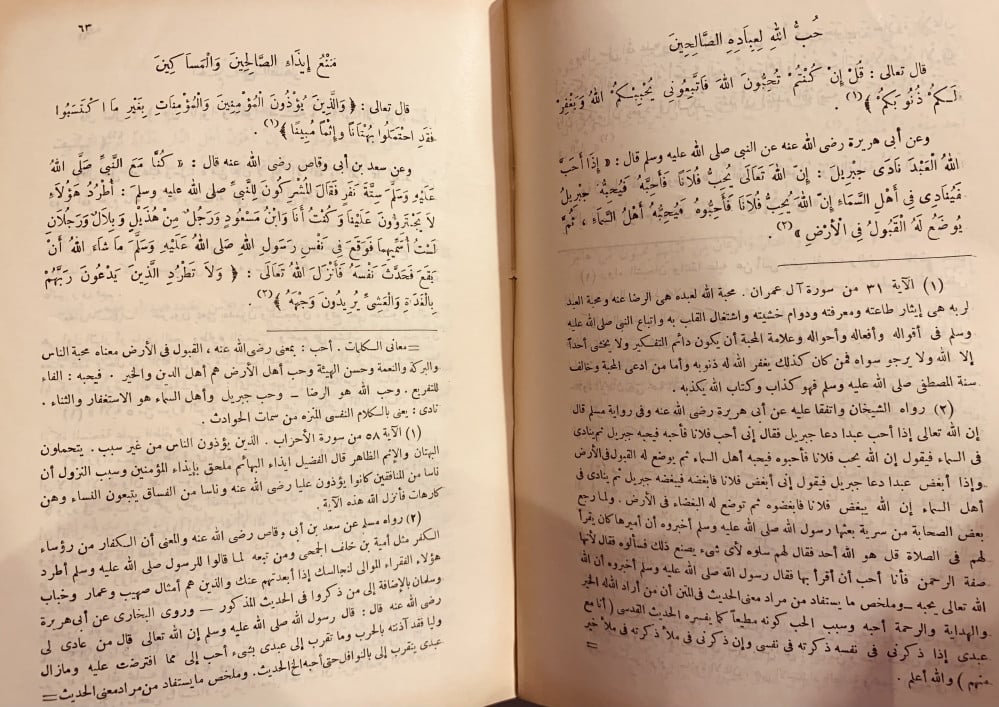 حُبُّ اللهِ لِعِبَادِهِ الصَّالِحِينَ
قال تعالى : قُلْ إِنْ كُنْتُمْ تُحِبُّونَ اللهَ فَاتَّبِعُونِى يُحْبِبْكُمُ اللهُ وَيَغْفِرْ
لَكُمْ ذُنُوبَكُمْ ﴾(١) .
وعن أبى هريرة رضى الله عنه عن النبى صلى الله عليه وسلم قال : « إِذَا أَحَبَّ
اللهُ الْعَبْدَ نَادَى جِبْرِيلَ : إِنَّ اللهَ تَعَالَى يُحِبُّ فُلَانًا فَأَحِبَّهُ فَيُحِبُّهُ جِبْرِيلُ
فَيُنَادِى فِى أَهْلِ السَّمَاءِ إِنَّ اللهَ يُحِبُّ فُلَانًا فَأَحِبُّوهُ فَيُحِبُّهُ أَهْلُ السَّمَاءِ ، ثُمَّ
يُوضَعُ لَهُ الْقَبُولُ فِى الْأَرْضِ »(٢) .
(١) الآية ٣١ من سورة آل عمران . محبة الله لعبده هى الرضا عنه ومحبة العبد
لربه هى إيثار طاعته ومعرفته ودوام خشيته واشتغال القلب به واتباع النبى صلى الله عليه
وسلم فى أقواله وأفعاله وأحواله وعلامة المحبة أن يكون دائم التفكير ولا يخشى أحداً
إلا الله ولا يرجو سواه فمن كان كذلك يغفر الله له ذنوبه وأما من ادعى المحبة وخالف
سنة المصطفى صلى الله عليه وسلم فهو كذاب وكتاب الله يكذبه .
(٢) رواه الشيخان واتفقا عليه عن أبى هريرة رضى الله عنه وفى رواية مسلم قال
إن الله تعالى إذا أحب عبدا دعا جبريل فقال إنى أحب فلانا فأحبه فيحبه جبريل ثم ينادى
فى السماء فيقول إن الله يحب فلانا فأحبوه فيحبه أهل السماء ثم يوضع له القبول فى الأرض
وإذا أبغض عبدا دعا جبريل فيقول إنى أبغض فلانا فابغضه فيبغضه جبريل ثم ينادى فى
أهل السماء إن الله يبغض فلانا فابغضوه ثم توضع له البغضاء فى الأرض . ولما رجع
بعض الصحابة من سرية بعثها رسول الله صلى الله عليه وسلم أخبروه أن أميرها كان يقرأ
لهم فى الصلاة قل هو الله أحد فقال لهم سلوه لأى شىء يصنع ذلك فسألوه فقال لأنها
صفة الرحمن فأنا أحب أن أقرأ بها فقال رسول الله صلى الله عليه وسلم أخبروه أن الله
الله تعالى يحبه ــ وملخص ما يستفاد من مراد معنى الحديث فى المتن أن من أراد الله له الخير
والهداية والرحمة أحبه وسبب الحب كونه مطيعاً كما يفسره الحديث القدسى ( أنا مع
عبدى إذا ذكرنى فى نفسه ذكرته فى نفسى وإن ذكرنى فى ملأ ذكرته فى ملأ خير
منهم ) والله أعلم .
=
٦٣
مَنْعُ إِيذَاءِ الصَّالِحِينَ وَالْمَسَاكِينَ
قال تعالى : ﴿ وَالَّذِينَ يُؤْذُونَ الْمُؤْمِنِينَ وَالْمُؤْمِنَاتِ بِغَيْرِ مَا اكْتَسَبُوا
فَقَدِ احْتَمَلُوا بُهْتَانًا وَإِثْمًا مُبِينًا ﴾(١) .
وعن سعد بن أبى وقاص رضى الله عنه قال : « كُنَّا مَعَ النَّبِيِّ صَلَّى اللهُ
عَلَيْهِ وَسَلَّمَ سِتَّةَ نَفَرٍ فَقَالَ الْمُشْرِكُونَ لِلنَّبِيِّ صلى الله عليه وسلم : اُطْرُدْ هَؤُلَاءِ
لَا يَجْتَرِئُونَ عَلَيْنَا وَكُنْتُ أَنَا وَابْنُ مَسْعُودٍ وَرَجُلٌ مِنْ هُذَيْلٍ وَبِلَالٌ وَرَجُلَانِ
لَسْتُ أُسَمِّيهِمَا فَوَقَعَ فِى نَفْسِ رَسُولِ اللهِ صلى اللهُ عَلَيْهِ وَسَلَّمَ مَا شَاءَ اللهُ أَنْ
يَقَعَ فَحَدَّثَ نَفْسَهُ فَأَنْزَلَ اللهُ تَعَالَى : ﴿ وَلَا تَطْرُدِ الَّذِينَ يَدْعُونَ رَبَّهُمْ
بِالْغَدَاةِ وَالْعَشِىِّ يُرِيدُونَ وَجْهَهُ ﴾(٢) .
= معانى الكلمات . أحب : بمعنى رضى الله عنه ، القبول فى الأرض معناه محبة الناس
والبركة والنعمة وحسن الهيئة وحب أهل الأرض هم أهل الدين والخير . فيحبه : الفاء
للتفريع . وحب الله هو الرضا ــ وحب جبريل وأهل السماء هو الاستغفار والثناء .
نادى : يعنى بالكلام النفسى المنزه عن سمات الحوادث .
(١) الآية ٥٨ من سورة الأحزاب . الذين يؤذون الناس من غير سبب . يتحملون
البهتان والإثم الظاهر قال الفضيل ايذاء البهائم ملحق بإيذاء المؤمنين وسبب النزول أن
ناسا من المنافقين كانوا يؤذون عليا رضى الله عنه وناسا من الفساق يتبعون النساء وهن
كارهات فأنزل الله هذه الآية .
(٢) رواه مسلم عن سعد بن أبى وقاص رضى الله عنه والمعنى أن الكفار من رؤساء
الكفر مثل أمية بن خلف الجمحى ومن تبعه لما قالوا للرسول صلى الله عليه وسلم أطرد
هؤلاء الفقراء الموالى لنجالسك إذا أبعدتهم عنك والذين هم أمثال صهيب وعمار وخباب
وسلمان بالإضافة إلى من ذكروا فى الحديث المذكور ــ وروى البخارى عن أبى هريرة
رضى الله عنه قال : قال رسول الله صلى الله عليه وسلم إن الله تعالى قال من عادى لى
وليا فقد آذنته بالحرب وما تقرب إلى عبدى بشىء أحب إلى مما افترضت عليه ومازال
عبدى يتقرب إلى بالنوافل حتى أحبه الخ الحديث. وملخص ما يستفاد من مراد معنى الحديث =